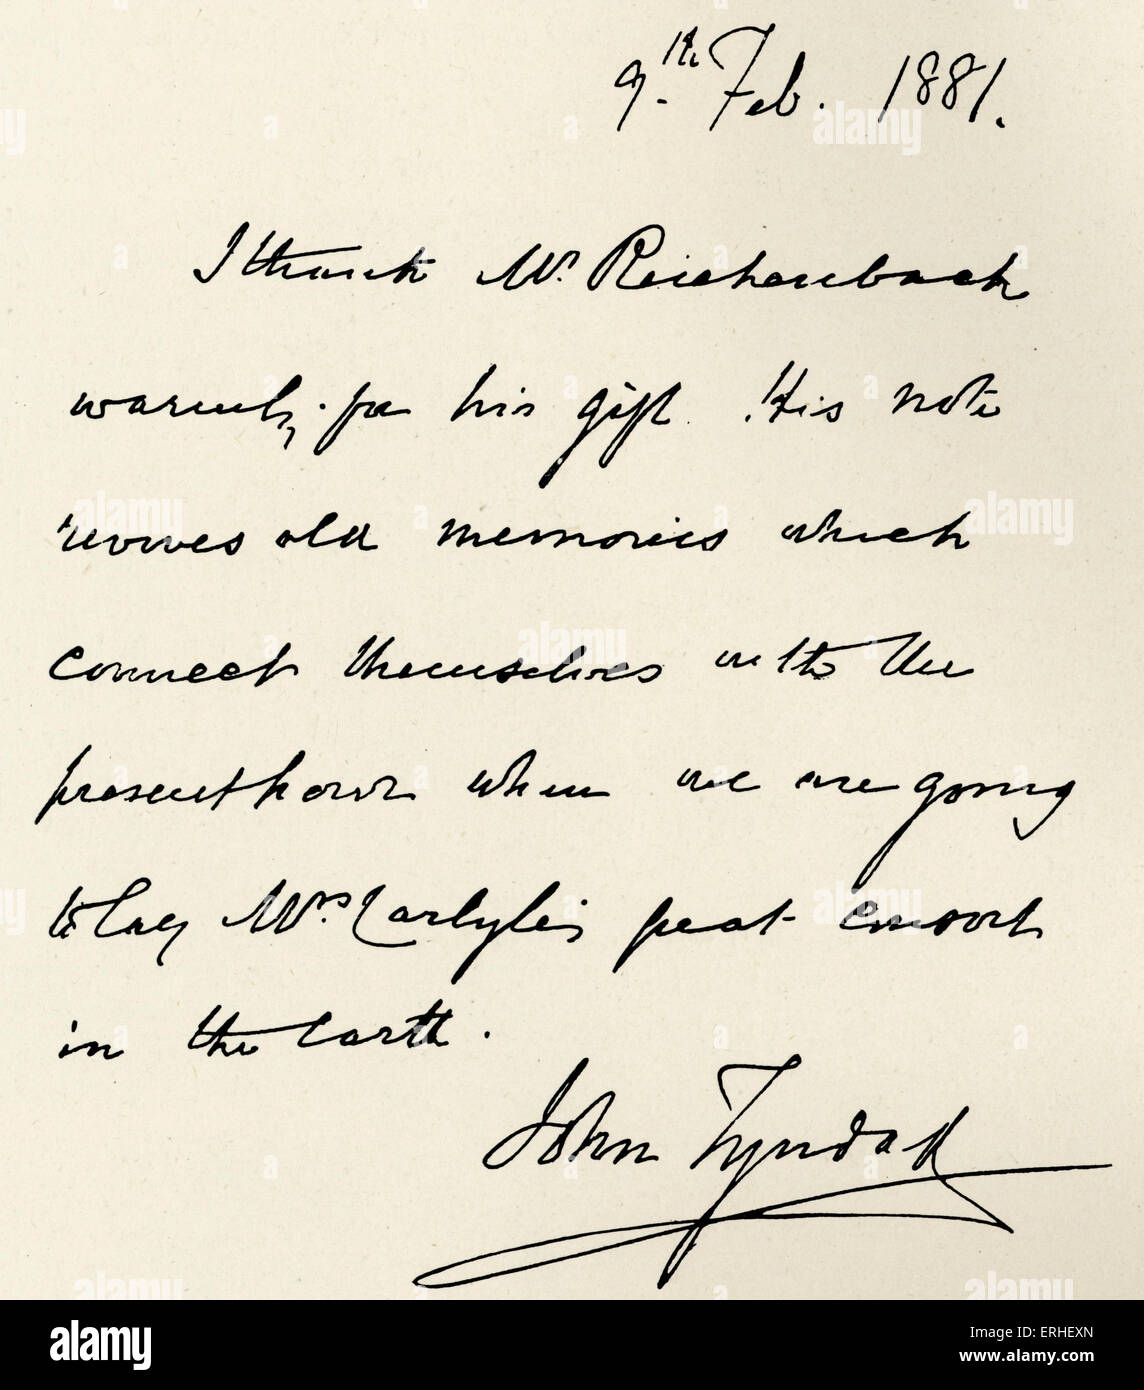 9th Feb. 1881.
I thank Mr. Reichenbach
warmly for his gift. His note
revives old memories which
connect themselves with the
present hour when we are going
to lay Mrs Carlyle's great
in the Earth.
John Tyndall
alamy
a
ERHEXN
www.alamy.com